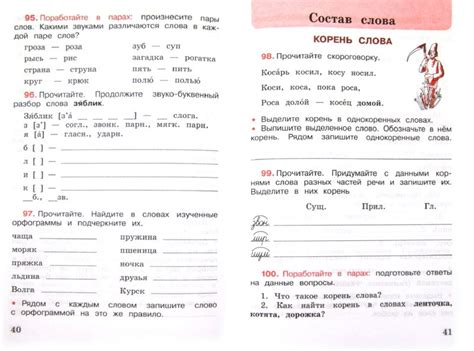 95. Поработайте в парах: произнесите пары
слов. Какими звуками различаются слова в каж-
дой паре слов?
гроза — роза зуб — суп
рысь — рис загадка — рогатка
страна — струна пять — пять
круг — крюк полю — полью
96. Прочитайте. Продолжите звуко-буквенный
разбор слова зяблик.
Зяблик [з'а́ — слога.
з [з'] — согл., звонк. парн., мягк. парн.
я [а́] — гласн., ударн.
б [ ] —
л [ ] —
и [ ] —
к [ ] —
б., зв.
97. Прочитайте. Найдите в словах изученные
орфограммы и подчеркните их.
чаща пружина
моряк пшеница
пряжка ночка
льдина друзья
Волга Курск
• Рядом с каждым словом запишите слово
с орфограммой на это же правило.
40
Состав слова
КОРЕНЬ СЛОВА
98. Прочитайте скороговорку.
Косарь косил, косу носил.
Коси, коса, пока роса,
Роса долой — косец домой.
• Выделите корень в однокоренных словах.
• Выпишите выделенное слово. Обозначьте в нём
корень. Рядом запишите однокоренные слова.
99. Прочитайте. Придумайте с данными кор-
нями слова разных частей речи и запишите их.
Выделите в них корень
Сущ. Прил. Гл.
звон
шум
шум
100. Поработайте в парах: подготовьте ответы
на данные вопросы.
1. Что такое корень слова?
2. Как найти корень в словах ленточка,
котята, дорожка?
41